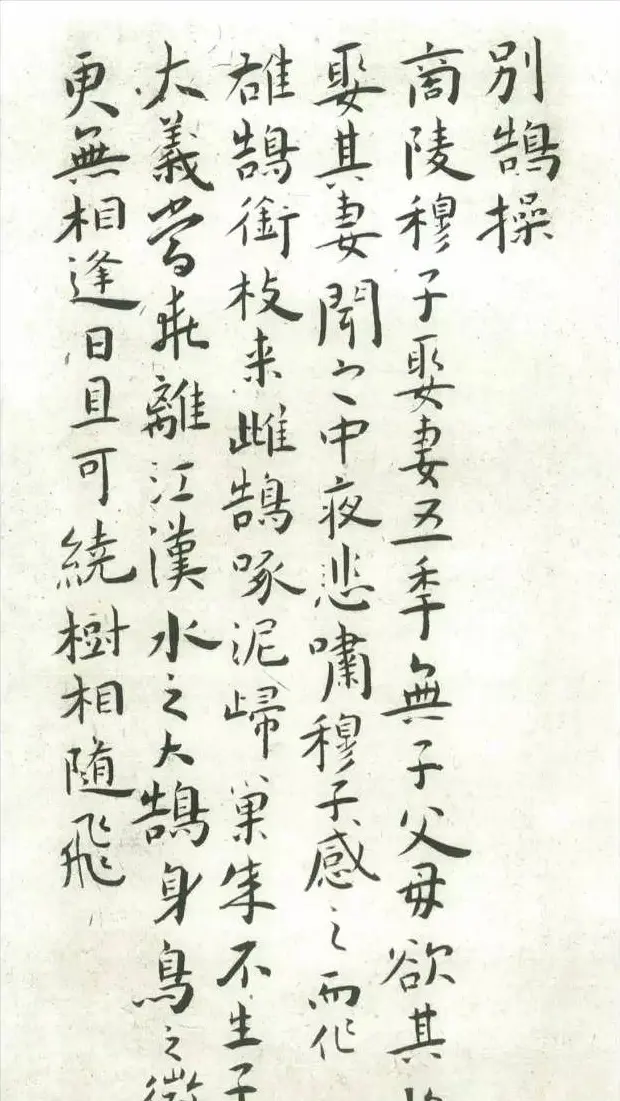 别鵠操
商陵穆子娶妻五秊無子父母欲其
娶其妻聞之中夜悲嘯穆子感之而作
雄鵠銜枝来雌鵠啄泥㱕巢成不生子
大義當乖離江漢水之大鵠身鳥之微
更無相逢日且可繞樹相随飛